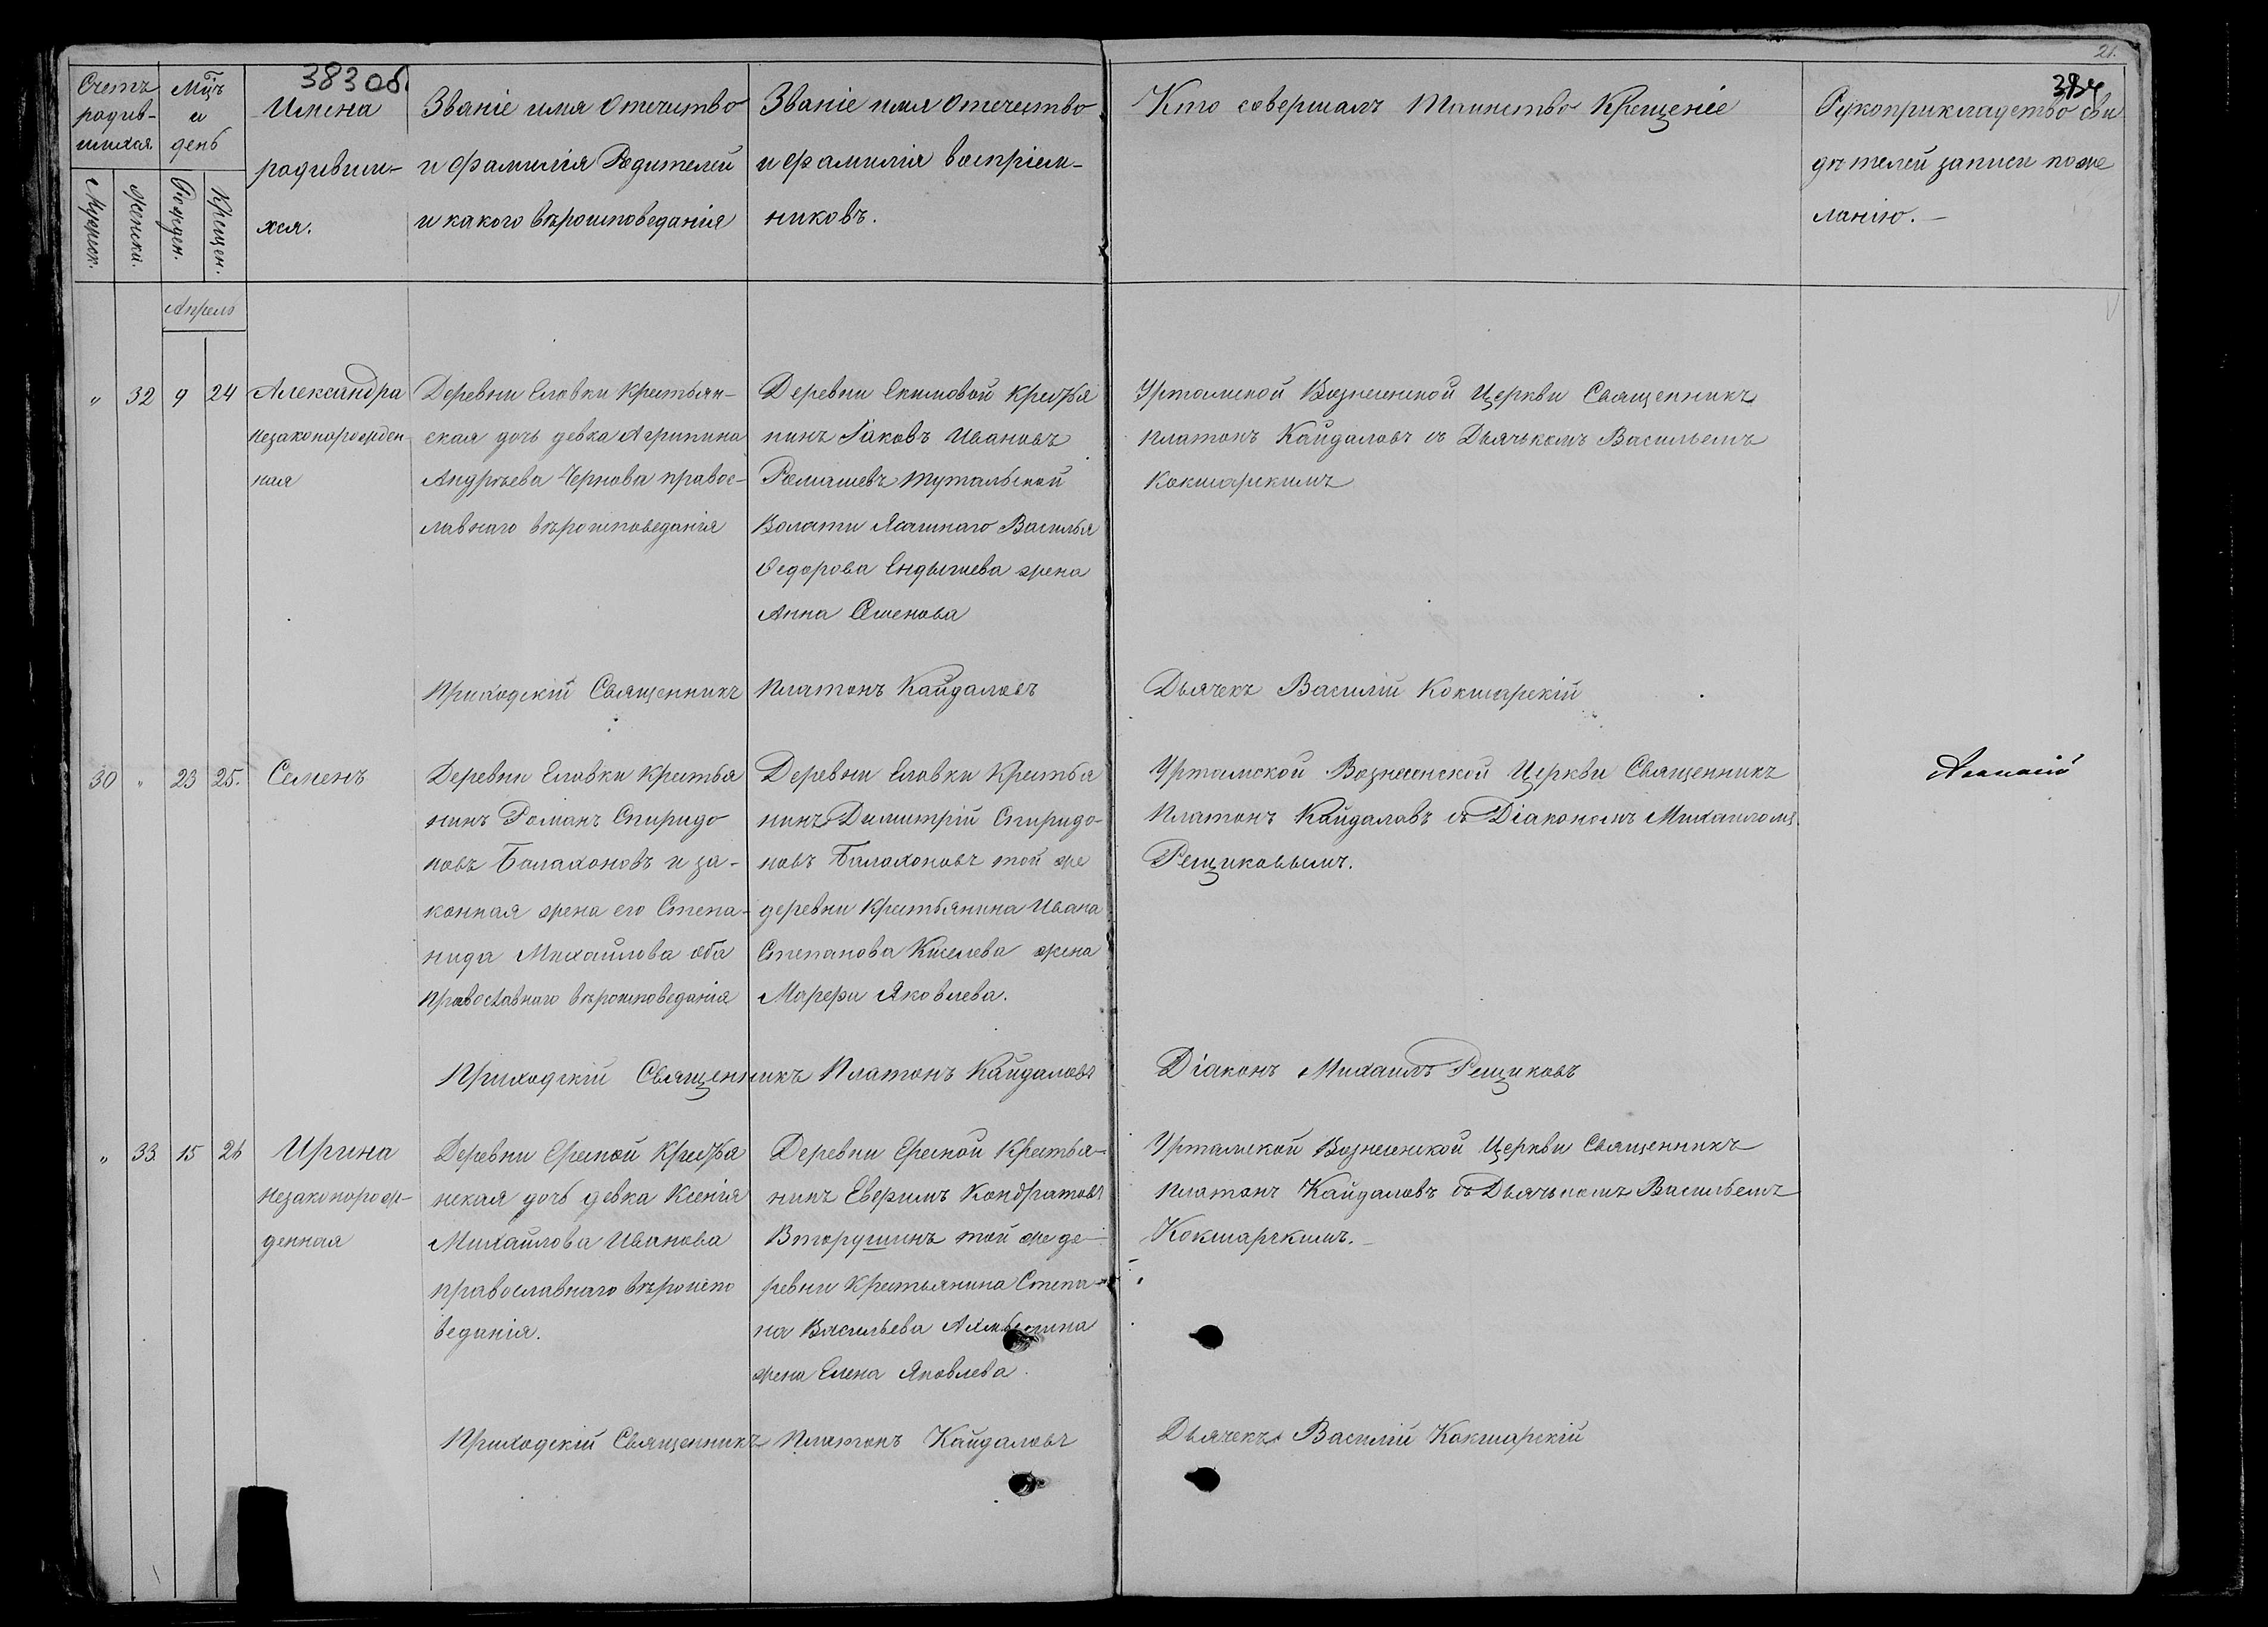 383 об.
21.
384
Счетъ
родив-
шихся
Мцъ
и
день
Имена
родивши-
хся.
Званіе имя отечество
и фамилія Родителей
и какого вѣроисповеданія
Званіе имя отечество
и фамилія воспріем-
никовъ.
Кто совершалъ таинство Крещеніе
Рукоприкладство сви
дѣтелей записи поже
ланію.
Мужеск.
Женска.
Рожден.
Крещен.
Апрель
" 32 9 24
Александра
незаконорожден
ная
Деревни Еловки крестьян-
ская дочь девка Агрипина
Андрѣева Чернова правос-
лавнаго вѣроисповеданія
Деревни Екимовой Крестья
нинъ Iаковъ Ивановъ
Ромашевъ тутальской
Волости Ясашнаго Василья
Ѳедорова Ендышева жена
Анна Семенова
Уртамской Вознесенской Церкви Священникъ
Платонъ Кайдаловъ съ Дьячькомъ Васильемъ
Кокшарскимъ
Приходскій Священникъ Платонъ Кайдаловъ
Дьячекъ Василій Кокшарскій
30 " 23 25.
Семенъ
Деревни Еловки Крестья
нинъ Романъ Спиридо
новъ Балахоновъ и за-
конная жена его Степа-
нида Михайлова оба
православнаго вѣроисповеданія
Деревни Еловки Крестья
нинъ Димитрій Спиридо-
новъ Балахоновъ той же
деревни крестьянина Ивана
Степанова Киселева жена
Марфа Яковлева.
Уртамской Вознесенской Церкви Священникъ
Платонъ Кайдаловъ съ Діакономъ Михаиломъ
Рещиковымъ.
Приходскій Священникъ Платонъ Кайдаловъ
Діаконъ Михаилъ Рещиковъ
" 33 15 26
Ирина
незаконорож-
денная
Деревни Ересной Крестья
нская дочь девка Ксенія
Михайлова Иванова
православнаго вѣроиспо
веданія.
Деревни Ересной Крестья-
нинъ Евфимъ Кондратовъ
Вторушинъ той же де-
ревни Крестьянина Степа-
на Васильева
жена Елена Яковлева.
Уртамской Вознесенской Церкви Священникъ
Платонъ Кайдаловъ съ Дьячькомъ Васильемъ
Кокшарскимъ.
Приходскій Священникъ Платонъ Кайдаловъ
Дьячекъ Василій Кокшарскій